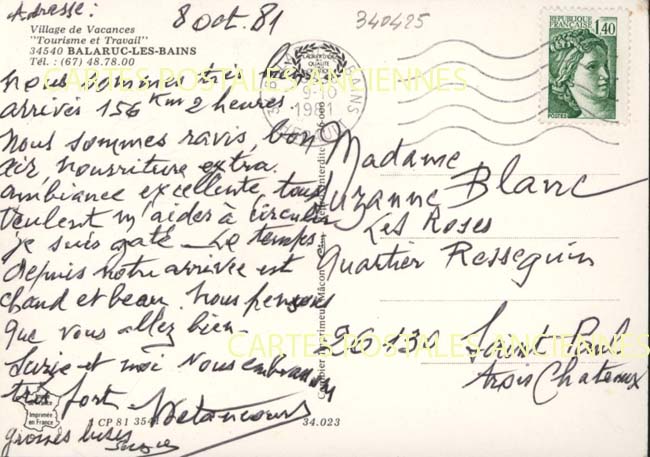 Adresse:
8 oct. 81
340425
Village de Vacances
"Tourisme et Travail"
34540 BALARUC-LES-BAINS
Tél. : (67) 48.78.00
REPUBLIQUE FRANCAISE
1,40
POSTES
9-10
1981
CARTES POSTALES ANCIENNES
nous sommes très bien
arrivés 156 Km 2 heures.
nous sommes ravis, bon
air, nourriture extra.
ambiance excellente, tous
veulent m'aider à circuler
je suis gaté - Le temps
depuis notre arrivée est
chaud et beau. nous pensons
que vous allez bien -
Suzie et moi nous embrassons
très fort
Betancourt
grosses bises
Suzie
Madame
Suzanne Blanc
Les Roses
Quartier Resseguin
26130 Saint Paul
trois Chateaux
CARTES POSTALES ANCIENNES
Imprimée
en France
CP 81 354
34.023